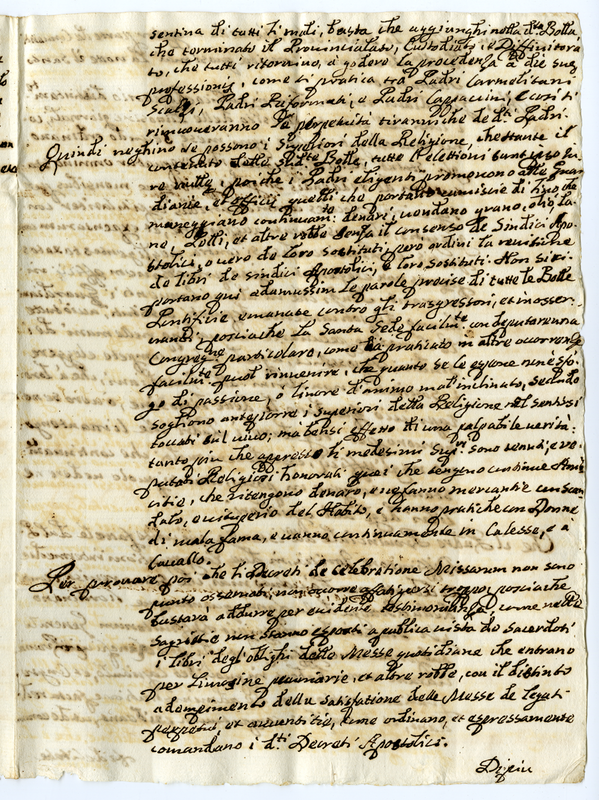 sentina di tutti li mali, basta che aggiunghi nella d.ta Bolla
che terminato il Provincialato, Custodiato, et Diffinitora
to, che tutti ritornino, a godere la precedenza a die suę
professionis, come si pratica tra Padri Carmelitani
Scalzi, Padri Riformati, e Padri Cappuccini, e così si
rimoveranno le perpetuità tiranniche de d.ti Padri.
Quindi neghino se possono i Superiori della Religione, che stante il
contenuto delle sud.te Bolle, tutte l'elettioni sunt ipso Ju
re nullę, poiche i Padri eligenti promovono alle Guar
dianie, et officij quelli che portano camiscie di lino, ma
neggiano continuam.te denari, vendano grano, olio, la
ne, et altre robbe senza il consenso de Sindici Apo
stolici, o vero de loro sostituti, però ordini la revisione
de libri de sindici Apostolici, e loro sostituti. Non si ri
portano qui adamussim le parole precise di tutte le Bolle
Pontificie emanate contro gli trasgressori, et inosser
vandi, posciache la Santa Sede facilm.te con deputare una
Congreg.ne particolare, come hà praticato in altre occorrenze
facilm.te puol rinvenire, che quanto se le espone non è sfo
go di passione, o livore d'animo mal'inclinato, secondo
sogliono anteporre i superiori della Religione nel sentirsi
toccati sul vivo; ma bensi effetto di una palpabile verità.
tanto più che appresso li medesimi Sup.ri sono tenuti, e re
putati Religiosi honorati quei che tengono continue Ami
citie, che ritengono denaro, e ne fanno mercantie con scan
dalo, e vituperio del Habito, e hanno pratiche con Donne
di mala fama, e vanno continuamente in Calesse, e à
Cavallo.
Per provare poi che li Decreti de celebratione Missarum non sono
punto osservati, non occorre affaticarsi troppo, posciache
bastarà addurre per evidente testimonianza, come nelle
Sagristie non stanno esposti a publica vista de Sacerdoti
i libri degl'oblighi delle Messe quotidiane che entrano
per limosine pecuniarie, et altre robbe, con il distinto
adempimento della satisfatione delle Messe de legati
perpetui, et avventitie, come ordinano, et espressamente
comandano i d.ti Decreti Apostolici.
Di piu